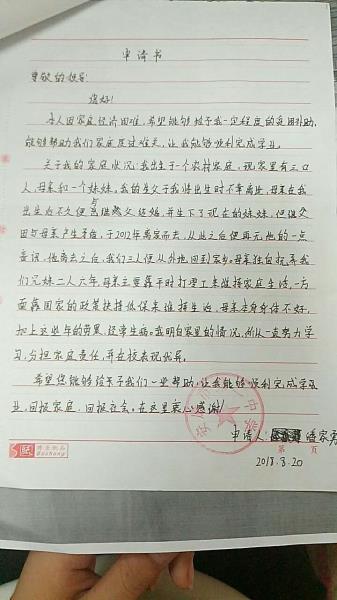 申请书
尊敬的领导:
您好!
本人因家庭经济困难,希望能够给予我一定程度的费用补助,
能够帮助我们家庭度过难关,让我能够顺利完成学业。
关于我的家庭状况:我出生于一个农村家庭,现家里有三口
人,母亲和一个妹妹。我的生父于我将出生时不幸离世,母亲在我
出生后不久便与继父结婚,并生下了现在的妹妹,但继父
因与母亲产生矛盾,于2012年离家而去,从此之后便再无他的一点
音讯,他离去之后,我们三人便从外地回到家乡。母亲独自抚养我
们兄妹二人六年,母亲主要靠平时打理工来维持家庭生活,一方
面靠国家的政策扶持低保来维持生活,母亲本身身体不好,
加上这些年的劳累,经常生病。我明白家里的情况,所以一直努力学
习,分担家庭责任,并在校表现优异。
希望您能够给予我们一些帮助,让我能够顺利完成学
业,回报家庭,回报社会。在这里衷心感谢!
申请人: 潘家
第 页
2018.8.20